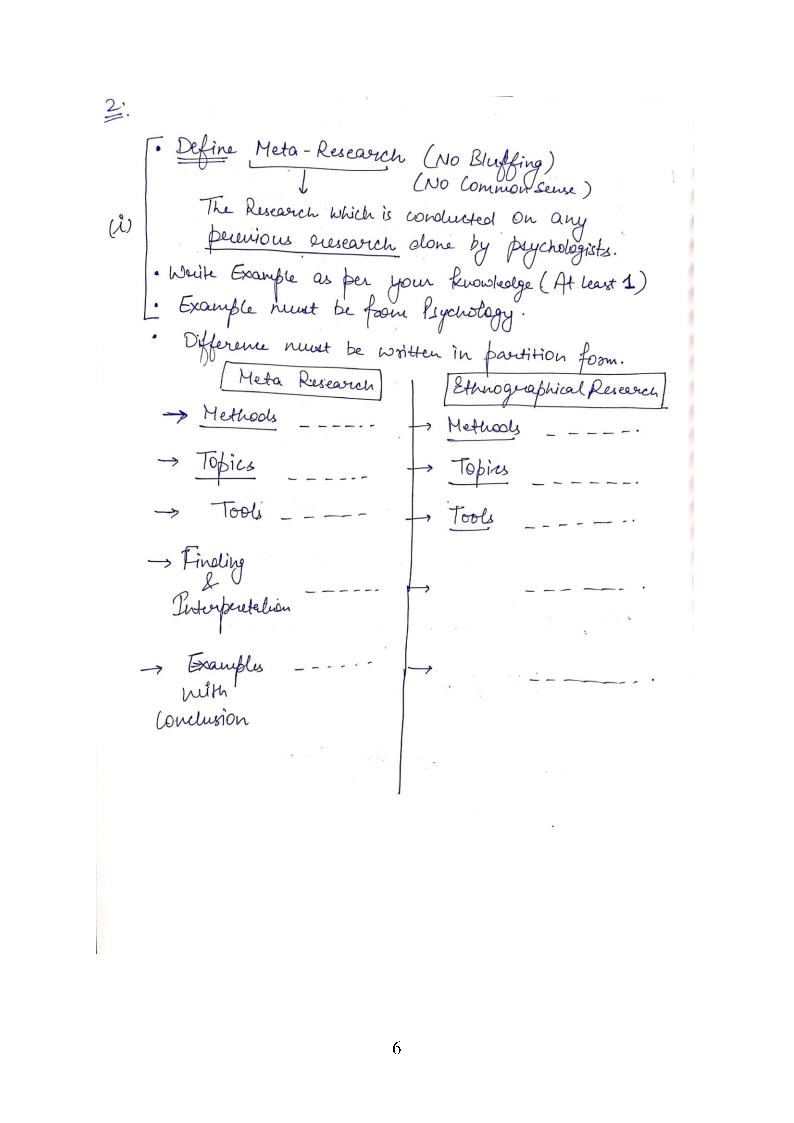 2:
• Define Meta-Research (No Bluffing)
(No Common Sense)
(i)
The Research which is conducted on any
previous research done by psychologists.
• Write Example as per your knowledge (At least 1)
• Example must be from Psychology.
• Difference must be written in partition form.
Meta Research Ethnographical Research
→ Methods ------. → Methods ------.
→ Topics ------. → Topics ------.
→ Tools ------ → Tools ------.
→ Finding
&
Interpretation ------. → ------.
→ Examples ------. → ------.
with
Conclusion
6